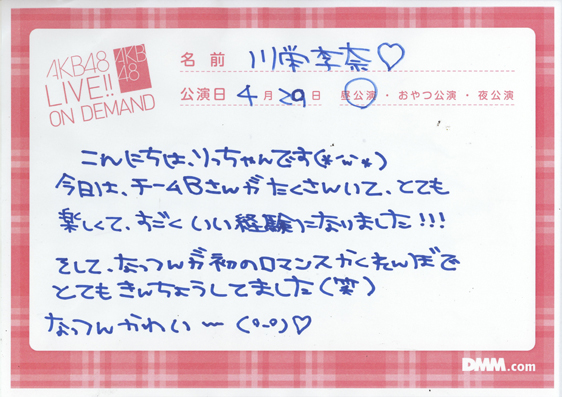 AKB48
LIVE!!
ON DEMAND
AKB
48
名前 川栄李奈♡
公演日 4月29日 昼公演・おやつ公演・夜公演
こんにちは、りっちゃんです(*´ω`*)
今日は、チームBさんがたくさんいて、とても
楽しくて、すごくいい経験になりました!!!
そして、なっつんが初のロマンスかくれんぼで
とてもきんちょうしてました(笑)
なっつんかわい〜(о-о)♡
DMM.com